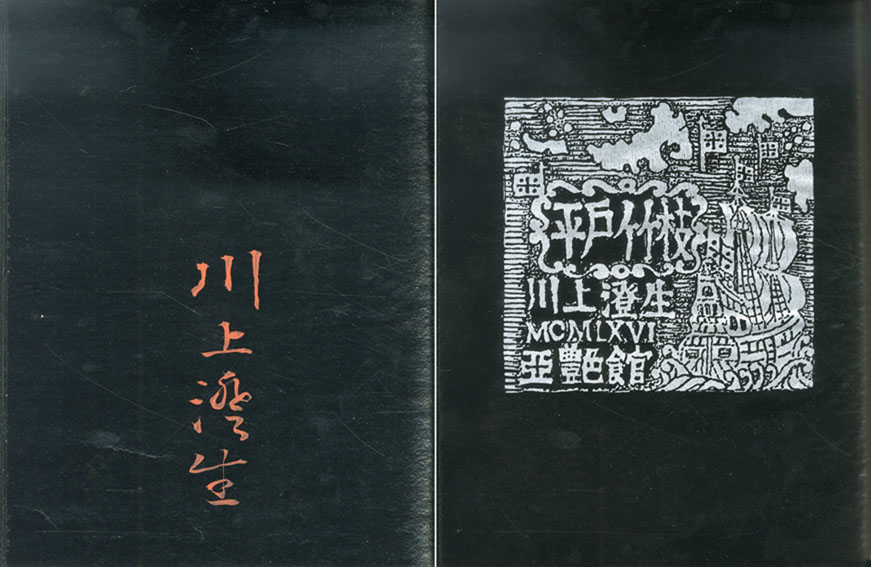 川上澄生
平戸竹枝
川上澄生
MCMLXVI
亞艶館